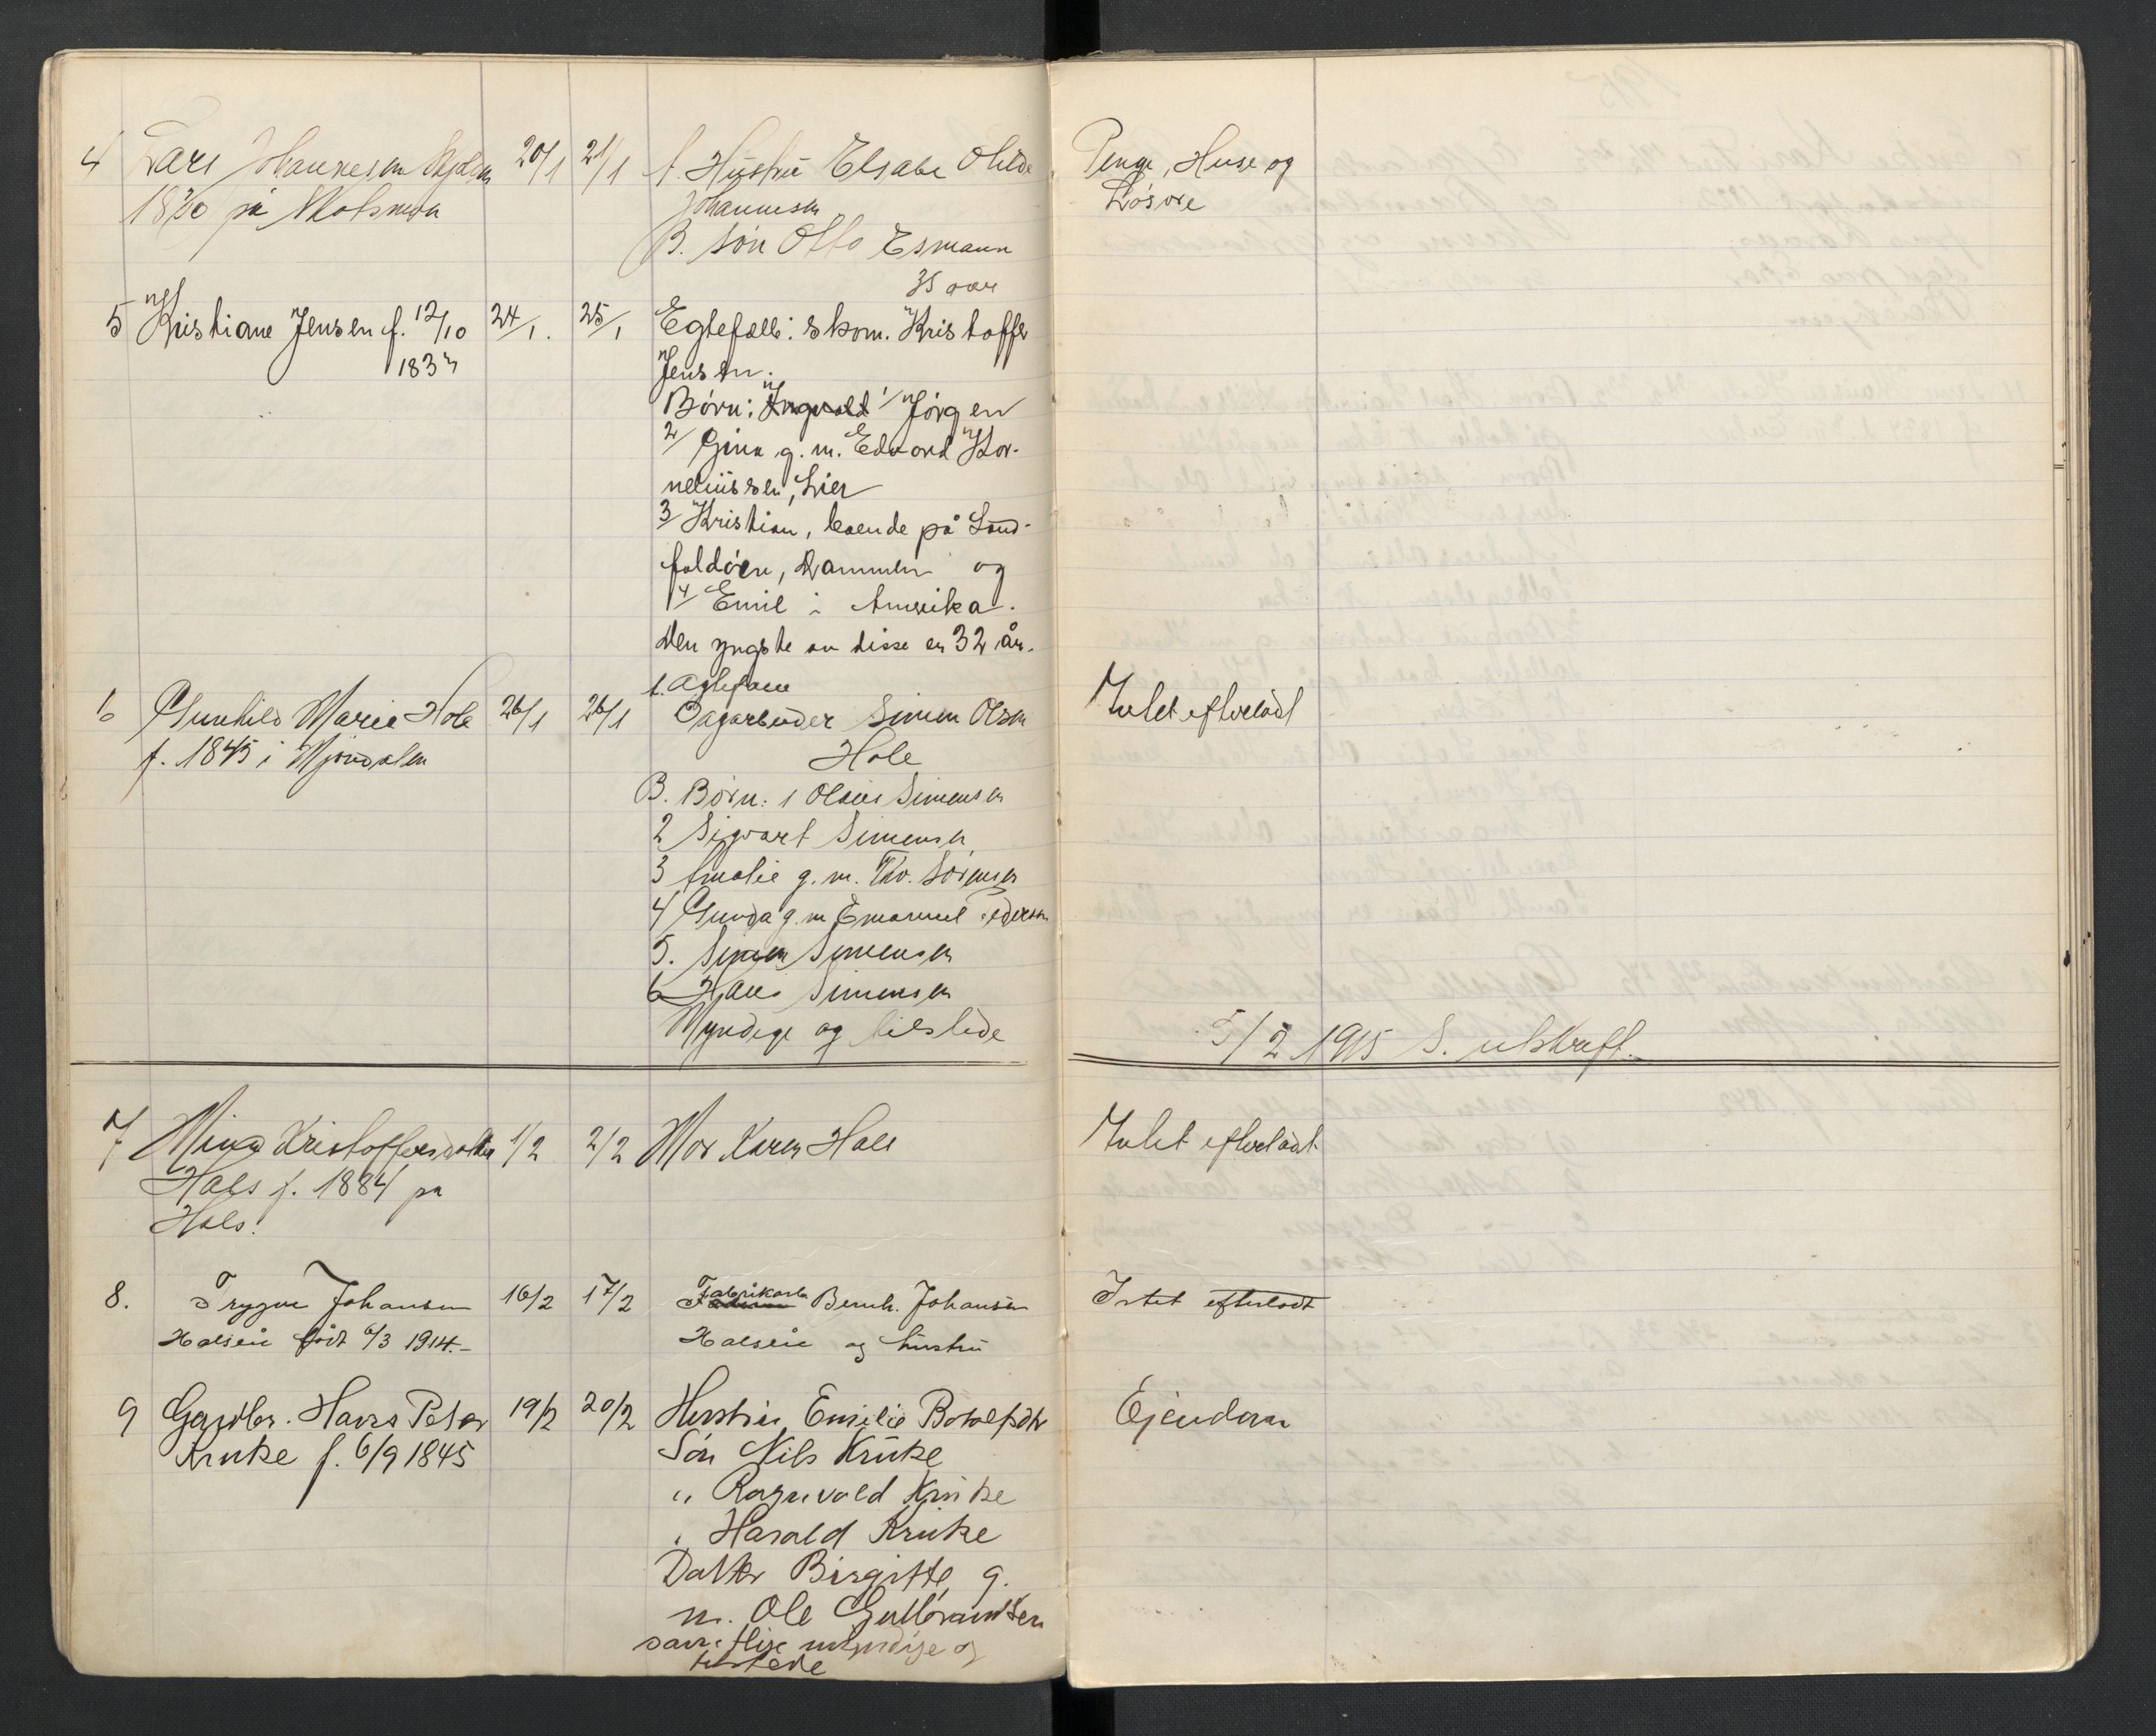 4 Lars Hannesen 20/1 21/1 A. Hustru Elsabe Olilde Penge, Huse og
18 på Johannesen Løsøre
B. Søn Otto Esmann
35 aar
5 Kristiane Jensen f. 12/10 24/1. 25/1 Egtefælle: skom. Kristoffer
183 Jensen.
Børn: Ingvald 1/ Jørgen
2/ Gina g. m. Edvard Kor-
neliussen, Lier
3/ Kristian, boende på Land-
faldøen, Drammen og
4/ Emil i Amerika.
Den yngste av disse er 32 år.
A. Egtefælle
6 Gunhild Marie Hole 26/1 26/1 Dagarbeider Simen Olsen Intet efterladt
f. 1845 i Mjøndalen Hole
B. Børn: 1 Olaus Simensen
2 Sigvart Simensen
3 Amalie g. m. Thv. Sørensen
4 Gunda g. m Emanuel Pedersen
5. Simen Simensen
6 Hans Simensen
Myndige og tilstede
5/2 1915 S. utskrift.
7 Mina Kristoffersdatter 1/2 2/2 Mor Karen Hals Intet efterladt
Hals f. 1884 på
Hals.
8. Trygve Johansen 16/2 17/2 Fabrikarb. Bernh. Johansen Intet efterladt
født 6/3 1914.- og hustru
9 Gaardbr. Hans Peter 19/2 20/2 Hustru Emilie Botolfsdtr Ejendom
Kruke f. 6/9 1845 Søn Nils Kruke
" Ragnvald Kruke
" Harald Kruke
Datter Birgitte g.
m. Ole Gulbrandsen
samtlige myndige og
tilstede